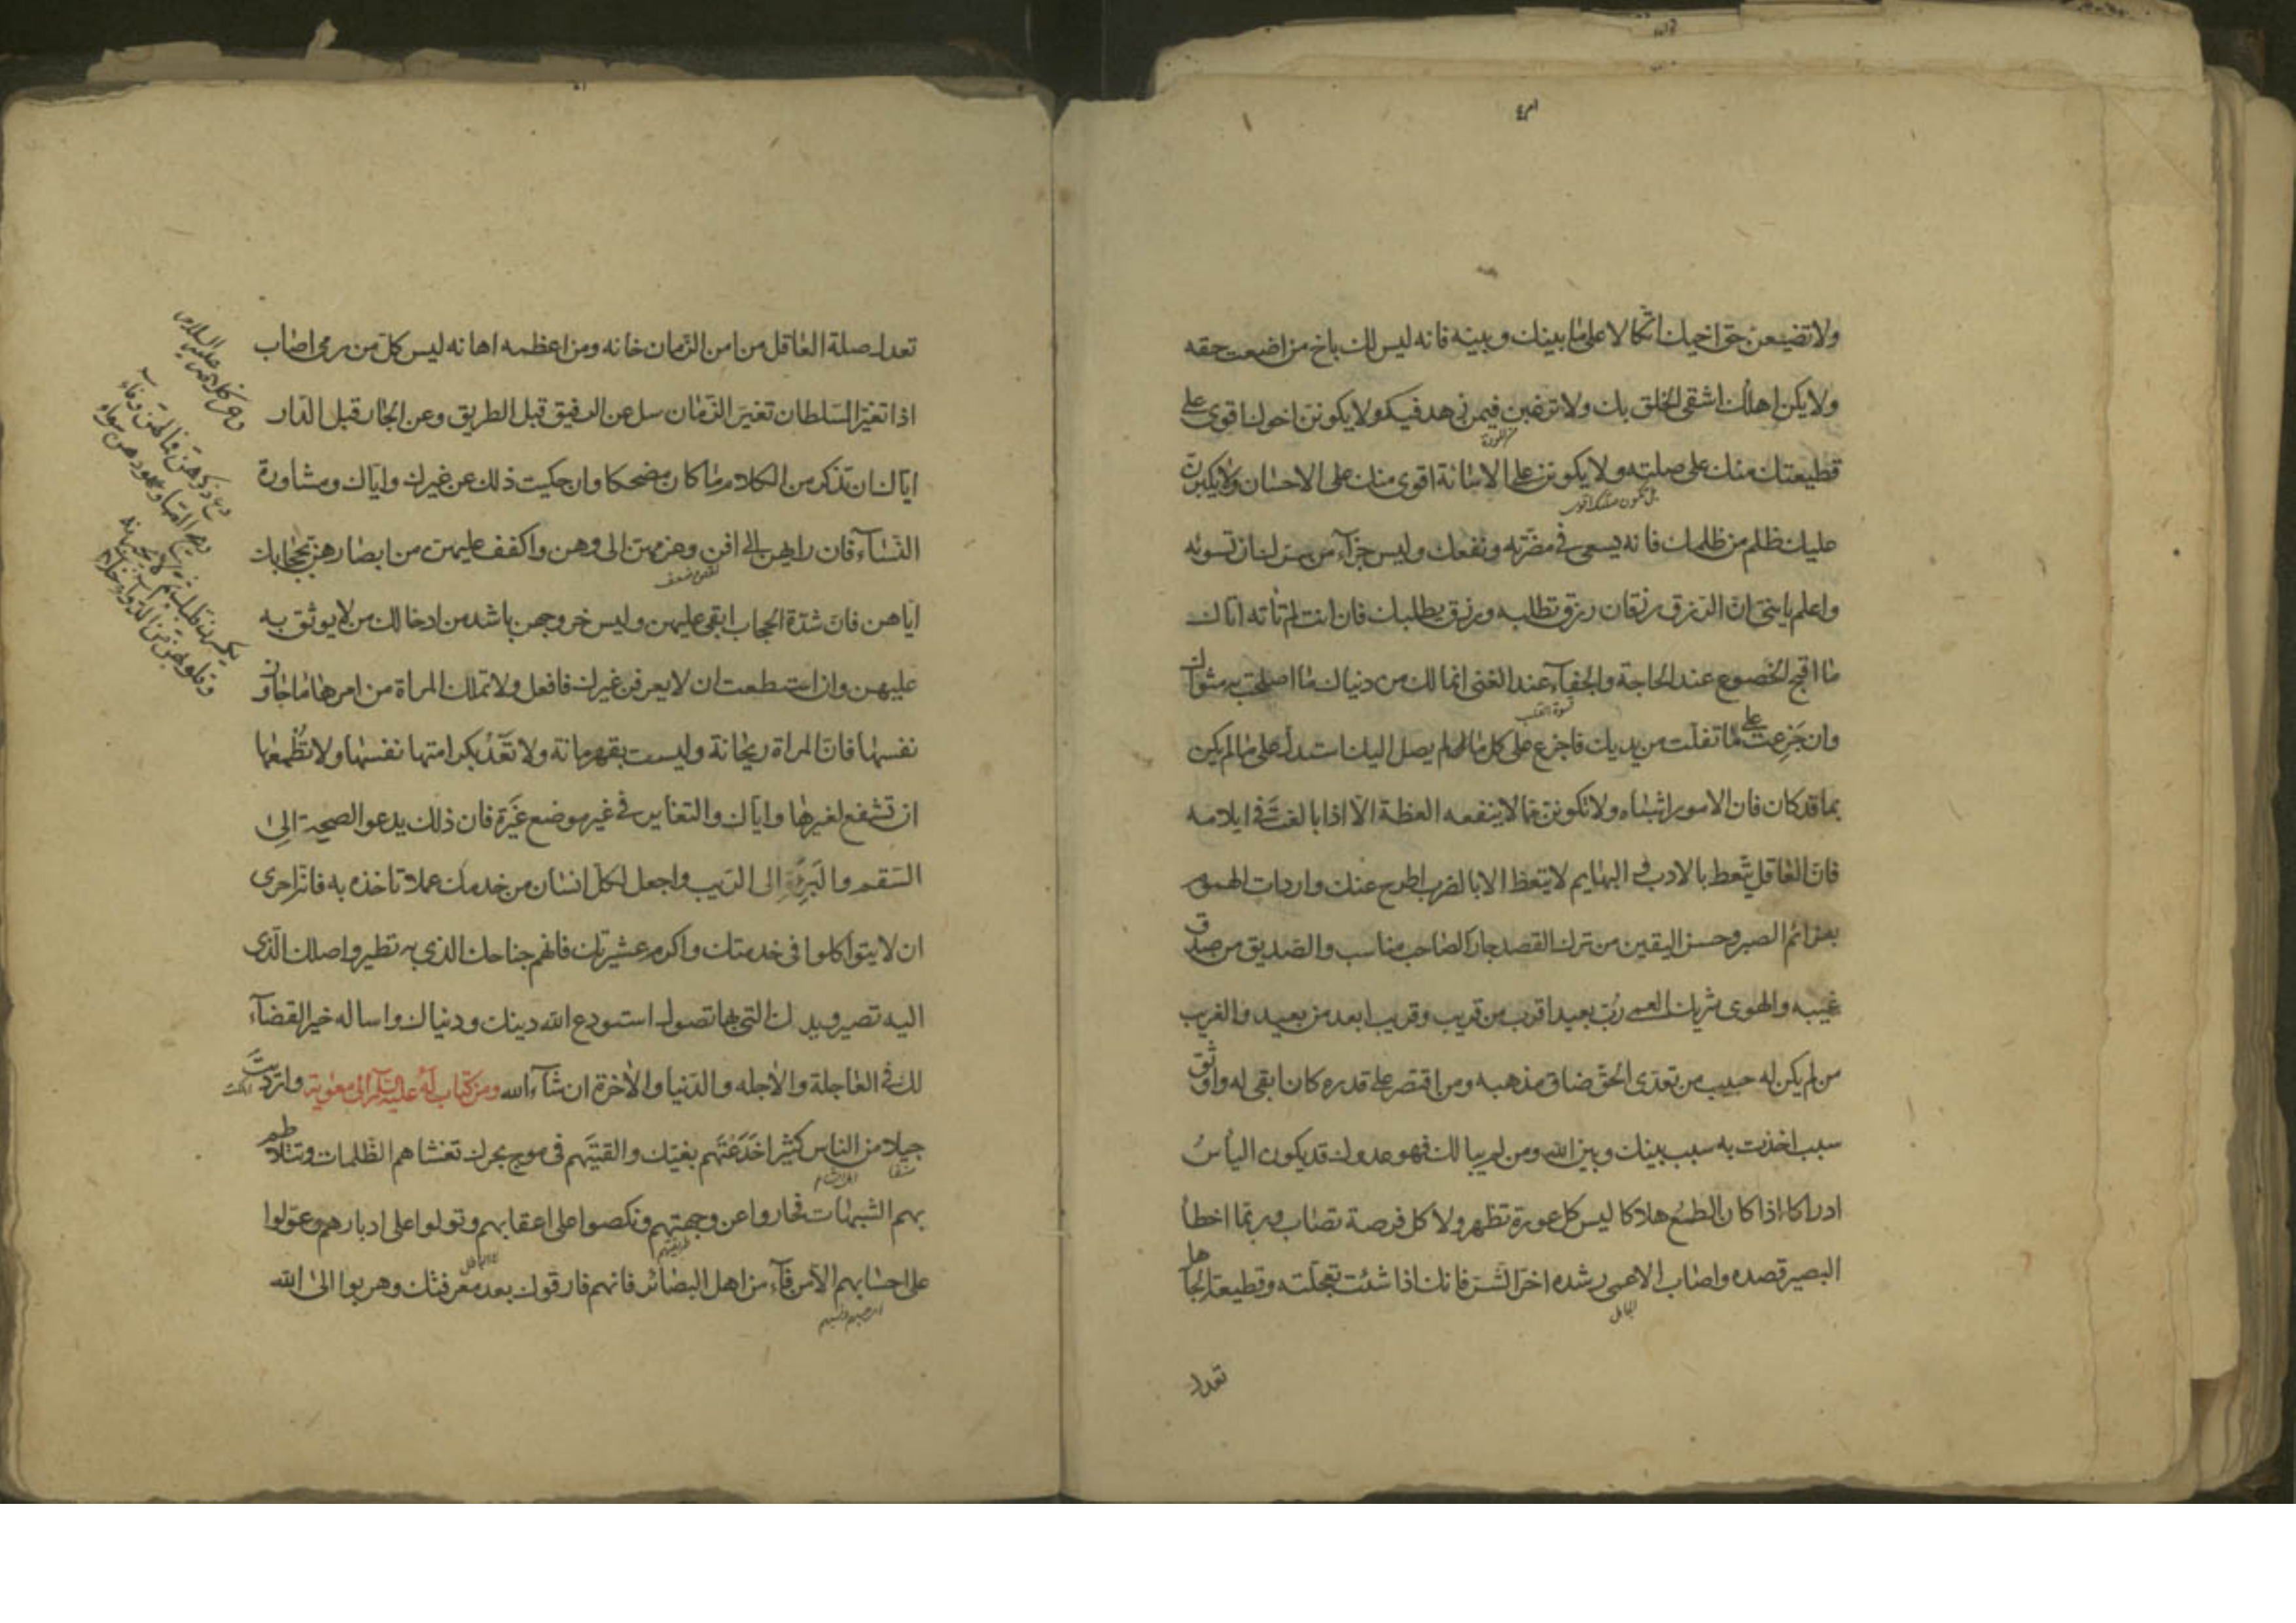 ولا تضيعن حق اخيك اتكالا على ما بينك وبينه فانه ليس لك باخ من اضعت حقه
ولا يكن اهلك اشقى الخلق بك ولا ترغبن فيمن زهد فيك ولا يكونن اخوك اقوى على
قطيعتك منك على صلته ولا يكونن على الاساءة اقوى منك على الاحسان ولا يكبرن
عليك ظلم من ظلمك فانه يسعى في مضرته ونفعك وليس جزآء من سرك ان تسوئه
واعلم يا بنى ان الرزق رزقان رزق تطلبه ورزق يطلبك فان انت لم تأته اتاك
ما اقبح الخضوع عند الحاجة والجفآء عند الغنى انما لك من دنياك ما اصلحت به مثواك
وان جزعت على ما تفلت من يديك فاجزع على كل ما لم يصل اليك استدل على ما لم يكن
بما قد كان فان الامور اشباه ولا تكونن ممن لا ينفعه العظة الا اذا بالغت فى ايلامه
فان العاقل يتعظ بالادب والبهايم لا يتعظ الا بالضرب اطرح عنك واردات الهموم
بعزائم الصبر وحسن اليقين من ترك القصد جار الصاحب مناسب والصديق من صدق
غيبه والهوى شريك العمى رب بعيد اقرب من قريب وقريب ابعد من بعيد والغريب
من لم يكن له حبيب من تعدى الحق ضاق مذهبه ومن اقتصر على قدره كان ابقى له واوثق
سبب اخذت به سبب بينك وبين الله ومن لم يبالك فهو عدوك قد يكون اليأس
ادراكا اذا كان الطمع هلاكا ليس كل عورة تظهر ولا كل فرصة تصاب وربما اخطأ
البصير قصده واصاب الاعمى رشده اخر الشر فانك اذا شئت تعجلته وقطيعة الجاهل
تعدل
تعدل صلة العاقل من امن الزمان خانه ومن اعظمه اهانه ليس كل من رمى اصاب
اذا تغير السلطان تغير الزمان سل عن الرفيق قبل الطريق وعن الجار قبل الدار
اياك ان تذكر من الكلام ما كان مضحكا وان حكيت ذلك عن غيرك واياك ومشاورة
النسآء فان رايهن الى افن وعزمهن الى وهن واكفف عليهن من ابصارهن بحجابك
اياهن فان شدة الحجاب ابقى عليهن وليس خروجهن باشد من ادخالك من لا يوثق به
عليهن وان استطعت ان لا يعرفن غيرك فافعل ولا تملك المراة من امرها ما جاوز
نفسها فان المراة ريحانة وليست بقهرمانة ولا تعد بكرامتها نفسها ولا تطمعها
ان تشفع لغيرها واياك والتغاير في غير موضع غيرة فان ذلك يدعو الصحيحة الى
السقم والبرية الى الريب واجعل لكل انسان من خدمك عملا تاخذه به فانه احرى
ان لا يتواكلوا فى خدمتك واكرم عشيرتك فانهم جناحك الذى به تطير واصلك الذى
اليه تصير ويدك التى بها تصول استودع الله دينك ودنياك واساله خير القضآء
لك فى العاجلة والاجله والدنيا والاخرة ان شآء الله ومن كتاب له عليه السلام الى معوية وارديت
جيلا من الناس كثيرا خدعتهم بغيك والقيتهم فى موج بحرك تغشاهم الظلمات وتتلاطم
بهم الشبهات فجاروا عن وجهتهم ونكصوا على اعقابهم وتولوا على ادبارهم وعولوا
على احسابهم الا من فآء من اهل البصائر فانهم فارقوك بعد معرفتك وهربوا الى الله